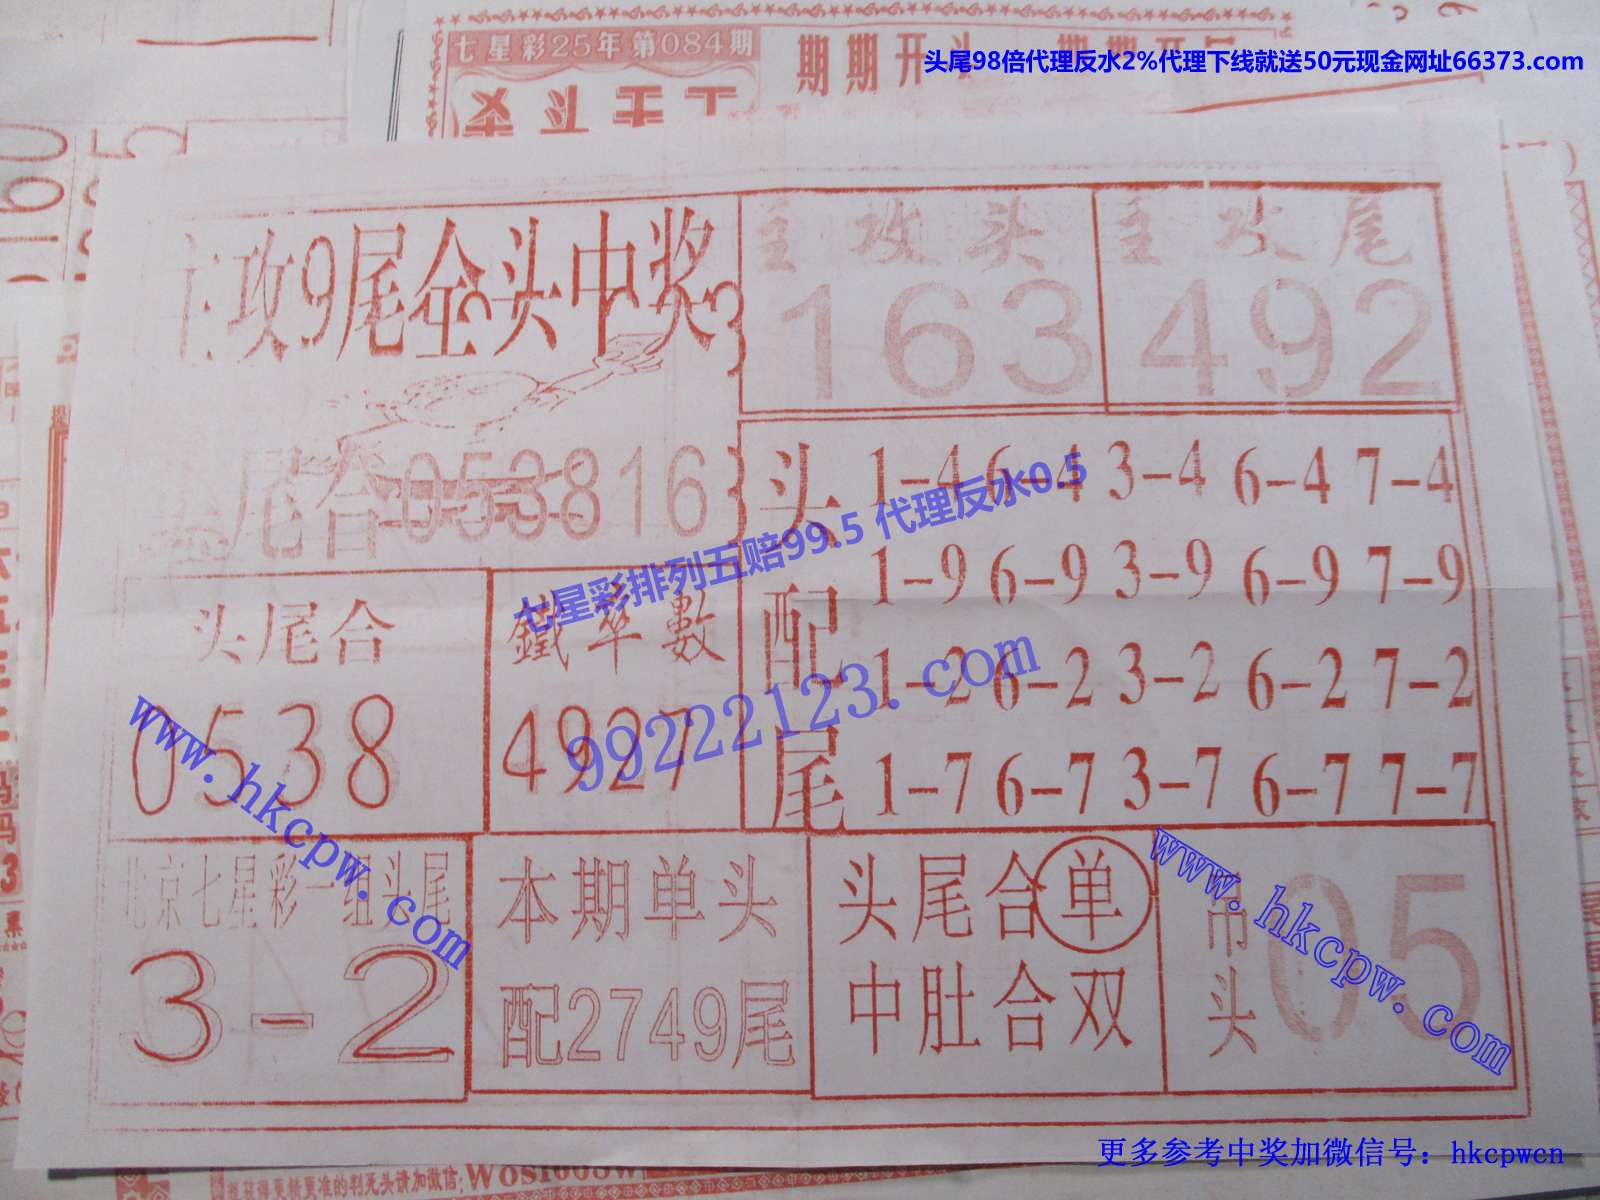 七星彩25年第084期
期期开头
头尾98倍代理反水2%代理下线就送50元现金网址66373.com
主攻9尾全头中奖
主攻头
163
主攻尾
492
尾合053816
头配尾
1-4 6-4 3-4 6-4 7-4
1-9 6-9 3-9 6-9 7-9
1-2 6-2 3-2 6-2 7-2
1-7 6-7 3-7 6-7 7-7
七星彩排列五赔99.5 代理反水0.5
99222123.com
头尾合
0538
鐵卒數
4927
www.hkcpw.com
北京七星彩一组头尾
3-2
本期单头
配2749尾
头尾合单
中肚合双
吊头
05
www.hkcpw.com
更多参考中奖加微信号：hkcpwcn
获得更精更准的判死头请加微信: